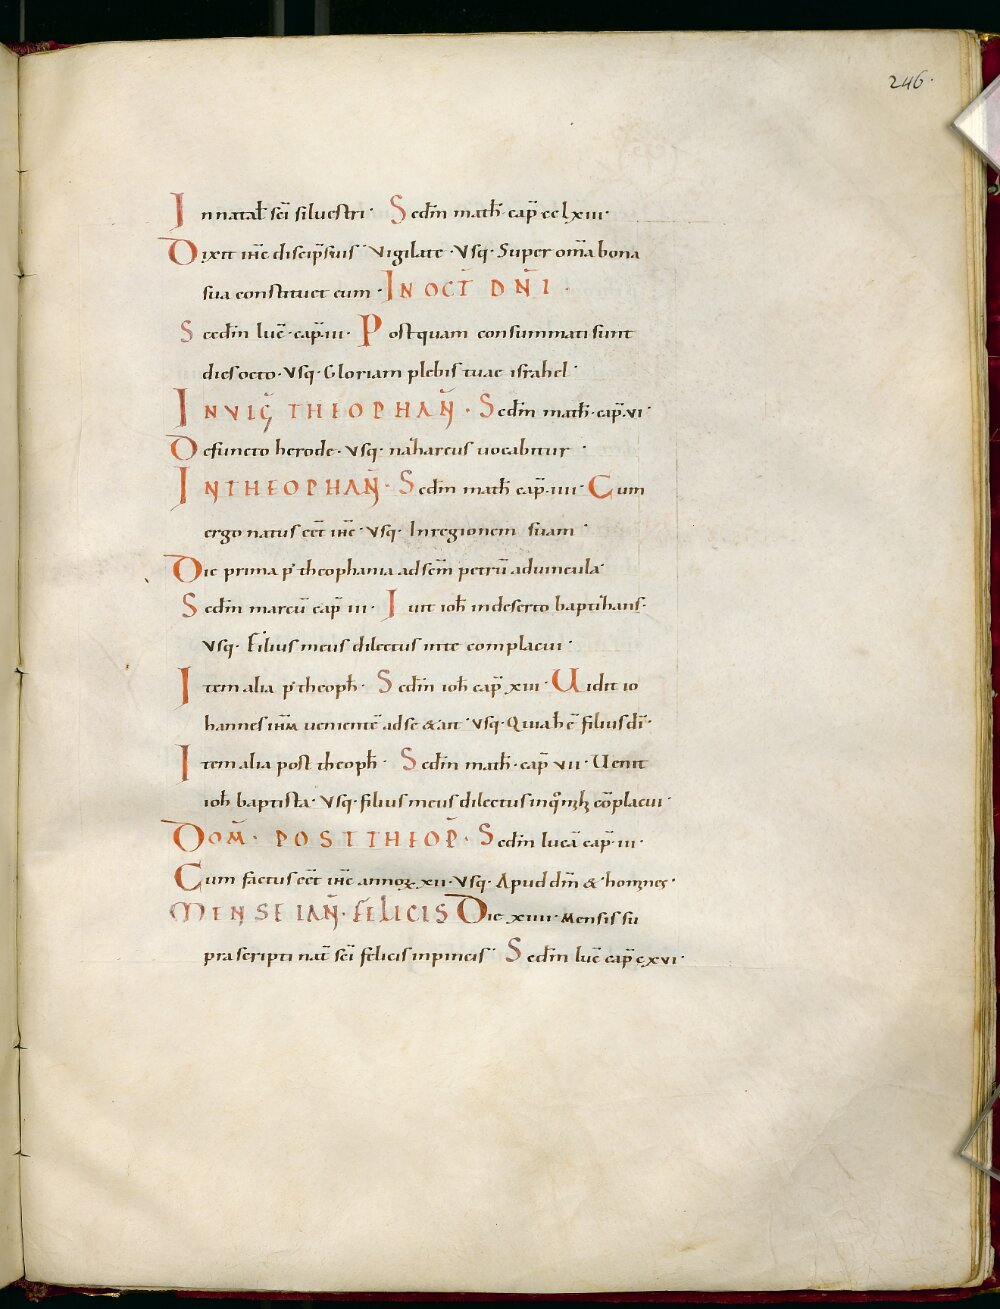 246.
In natał sc̄i siluestri · Secd̄m math̄ · cap̄ cclxiii ·
Dixit ih̄c discip̄s suis · Vigilate · Vsq· Super om̄a bona
sua constituet eum · IN OCT̄ DN̄I ·
Secd̄m luc̄ · cap̄ · iii · Postquam consummati sunt
dies octo · Vsq· Gloriam plebis tuae israhel ·
IN VIḠ THEOPHAN̄ · Secd̄m math̄ · cap̄ · vi ·
Defuncto herode · Vsq· nazareus uocabitur ·
IN THEOPHAN̄ · Secd̄m math̄ cap̄ · iiii · Cum
ergo natus eēt ih̄c · Vsq· In regionem suam ·
Die prima p̄ theophania ad sc̄m petrū ad uincula ·
Secd̄m marcū cap̄ iii · Fuit ioh̄ in deserto baptizans ·
Vsq· Filius meus dilectus in te complacui ·
Item alia p̄ theoph̄ · Secd̄m ioh̄ cap̄ xiii · Uidit io
hannes ih̄m uenientē ad se & ait · Vsq· Quia h̄ ē filius dī ·
Item alia post theoph̄ · Secd̄m math̄ · cap̄ vii · Uenit
ioh̄ baptista · Vsq· filius meus dilectus in q̊ m̄h cōplacui ·
DOM̄ · POST THEOP̄ · Secd̄m lucā cap̄ · iii ·
Cum factus eēt ih̄c annoꝝ · xii · Vsq· Apud dm̄ & homines ·
MENSE IAN̄ · FELICIS Die xiiii · Mensis su
prascripti nat̄ sc̄i felicis in pincis · Secd̄m luc̄ cap̄ cxvi ·